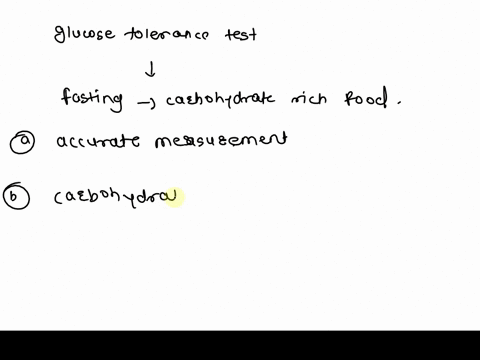 glucose tolerance test
↓
fasting → carbohydrate rich food.
(a) accurate measurement
(b) carbohydra